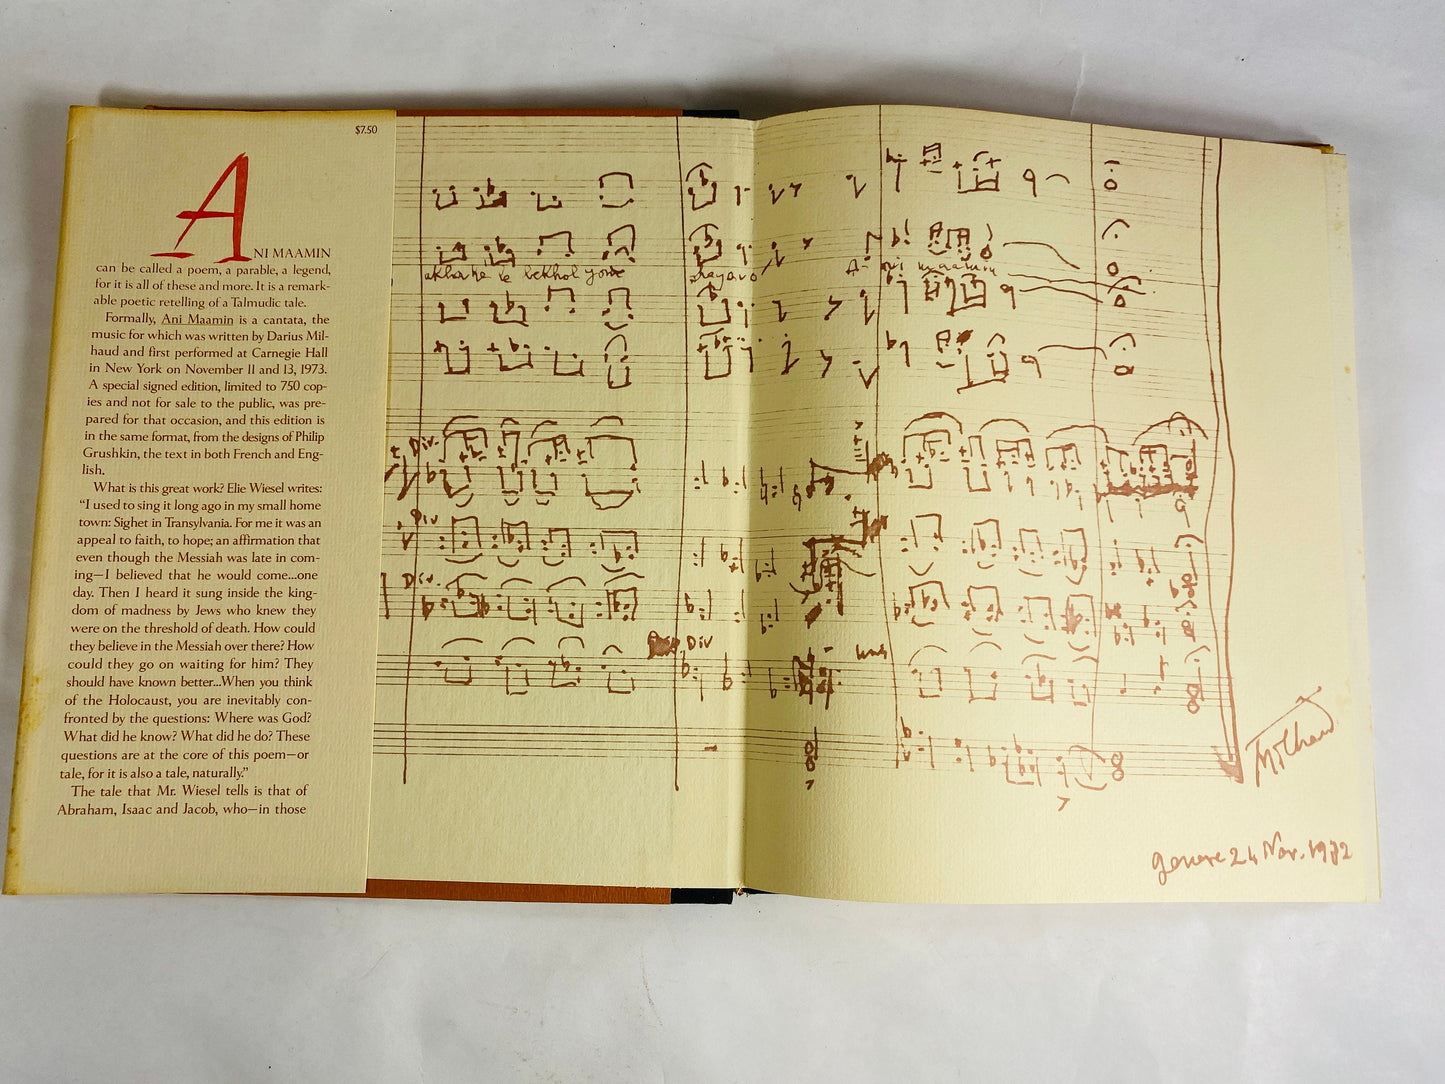 $7.50
ANI MAAMIN
can be called a poem, a parable, a legend,
for it is all of these and more. It is a remark-
able poetic retelling of a Talmudic tale.
Formally, Ani Maamin is a cantata, the
music for which was written by Darius Mil-
haud and first performed at Carnegie Hall
in New York on November 11 and 13, 1973.
A special signed edition, limited to 750 cop-
ies and not for sale to the public, was pre-
pared for that occasion, and this edition is
in the same format, from the designs of Philip
Grushkin, the text in both French and Eng-
lish.
What is this great work? Elie Wiesel writes:
“I used to sing it long ago in my small home
town: Sighet in Transylvania. For me it was an
appeal to faith, to hope; an affirmation that
even though the Messiah was late in com-
ing—I believed that he would come...one
day. Then I heard it sung inside the king-
dom of madness by Jews who knew they
were on the threshold of death. How could
they believe in the Messiah over there? How
could they go on waiting for him? They
should have known better...When you think
of the Holocaust, you are inevitably con-
fronted by the questions: Where was God?
What did he know? What did he do? These
questions are at the core of this poem—or
tale, for it is also a tale, naturally.”
The tale that Mr. Wiesel tells is that of
Abraham, Isaac and Jacob, who—in those
A- ni maamin
Div.
Div
Div.
Div
unis
Milhaud
24 Nov. 1972